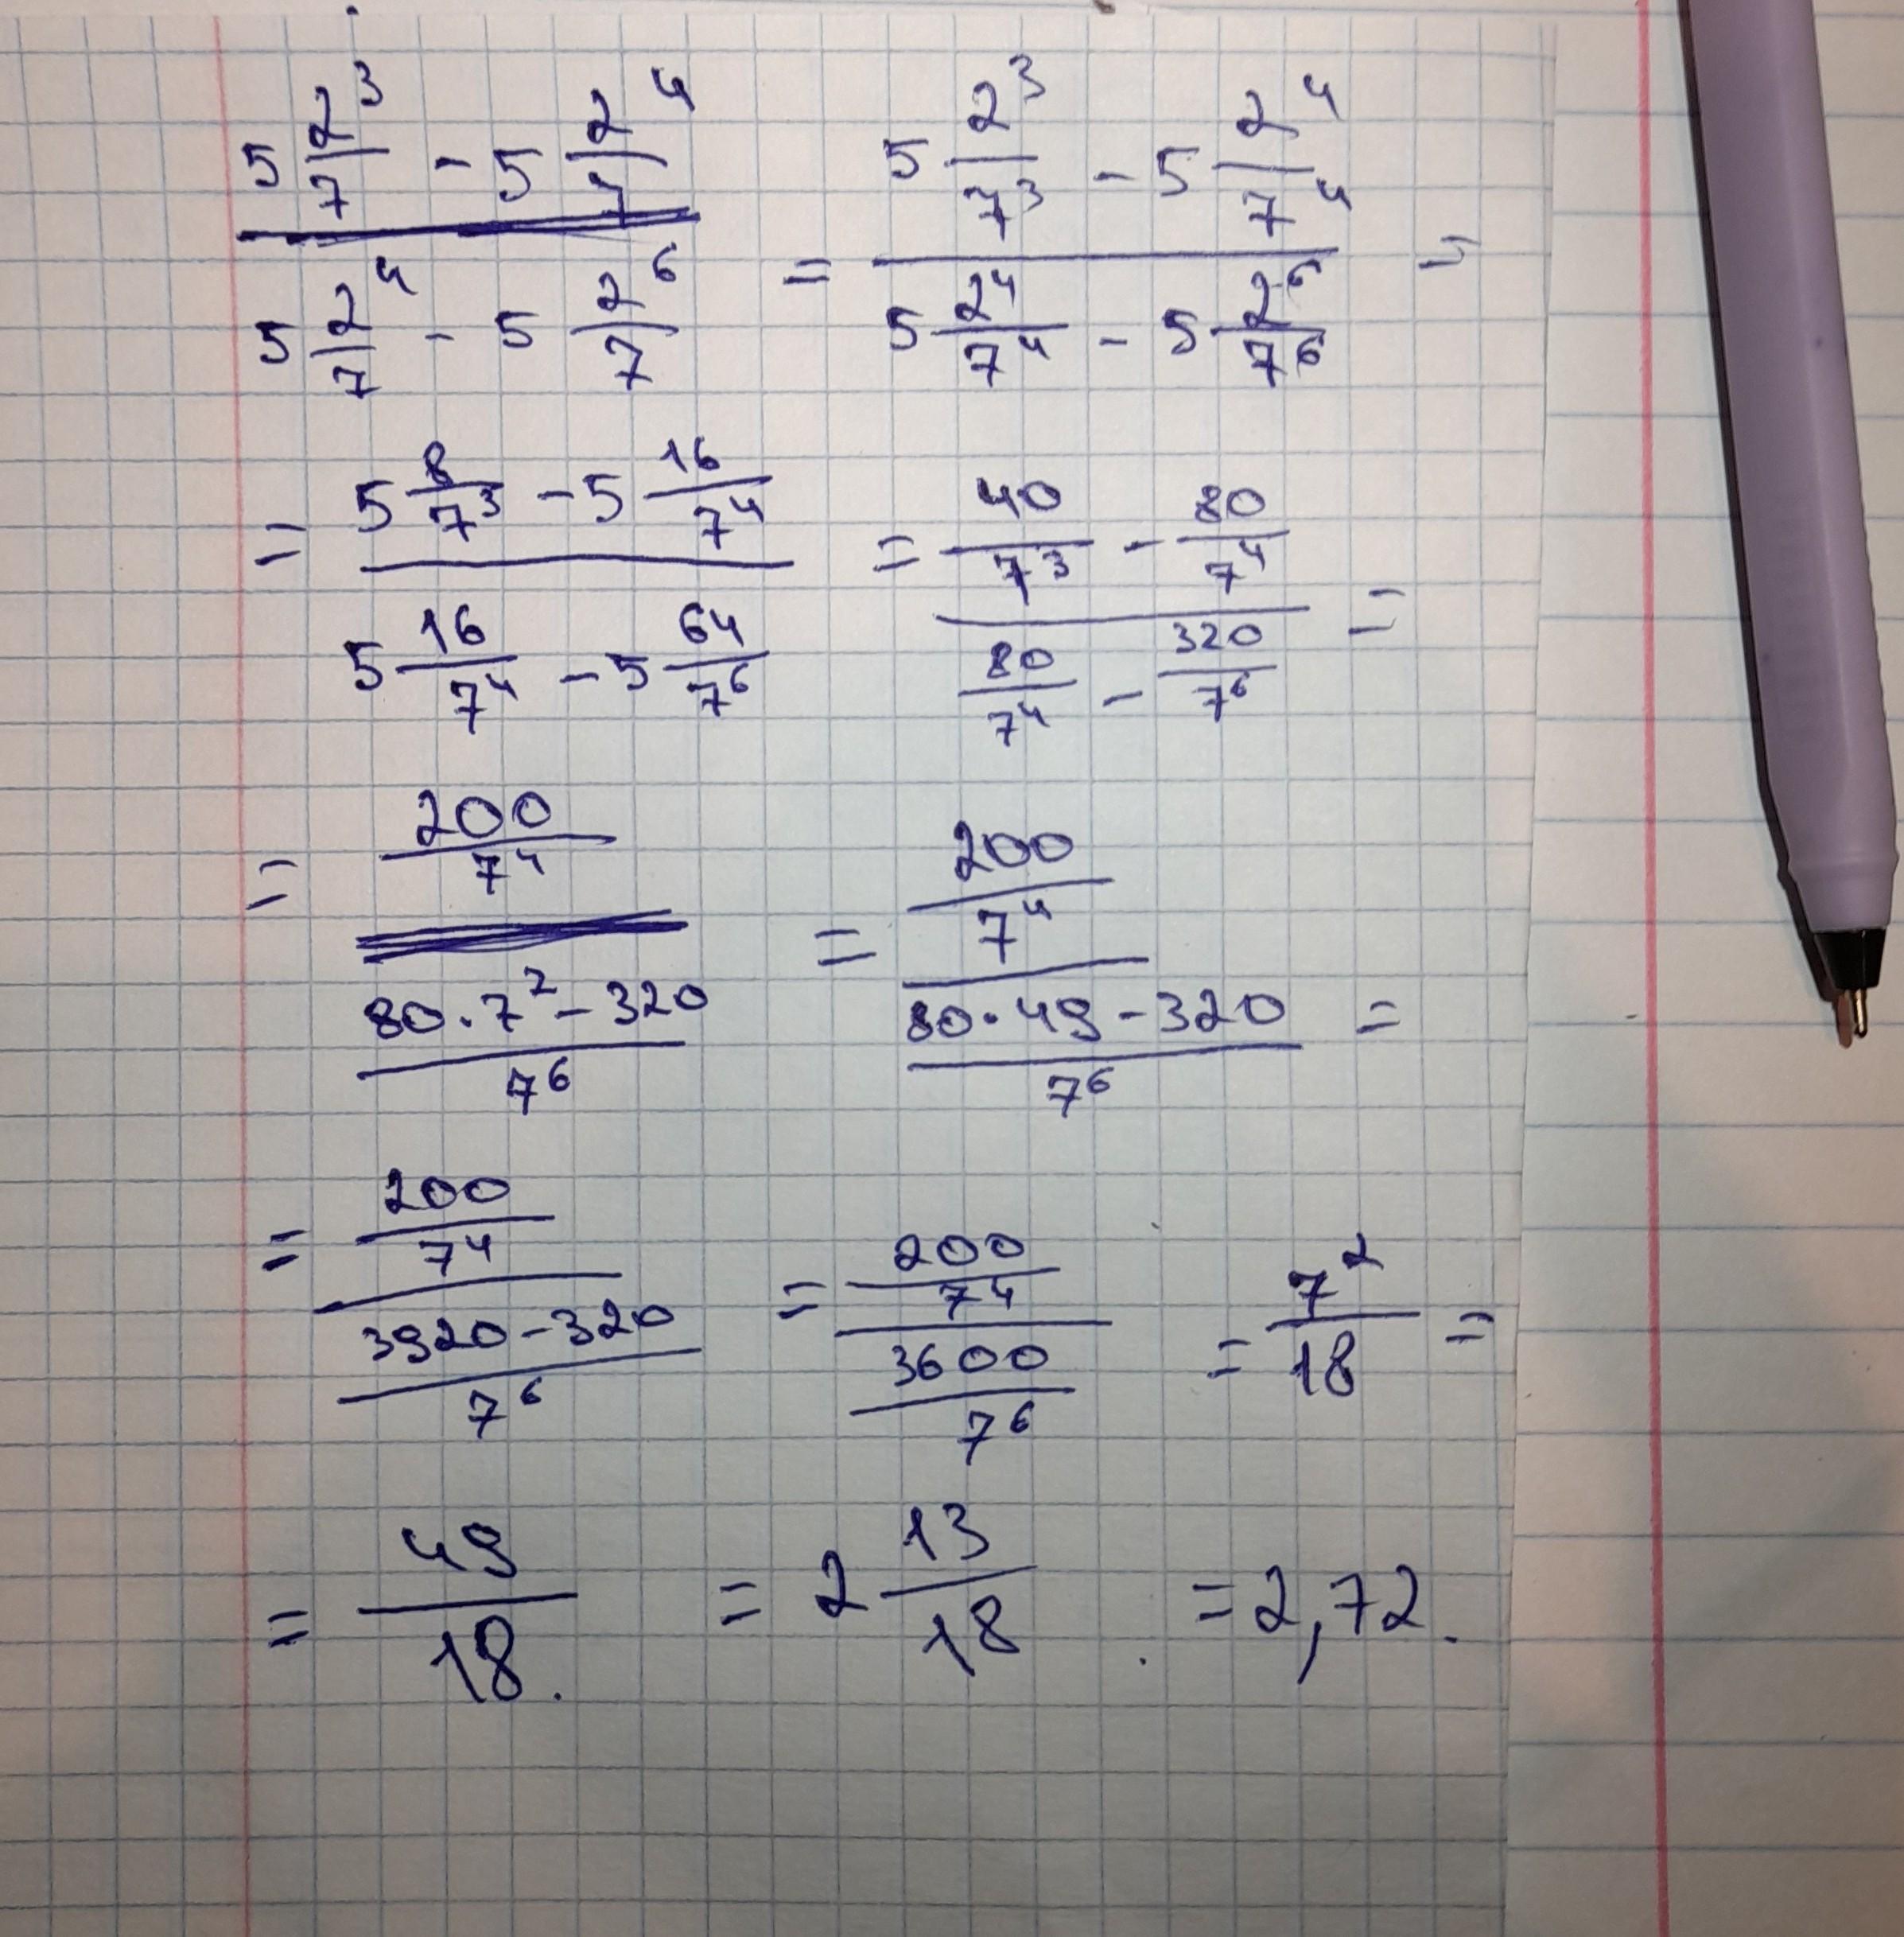 (5 2/7^3 - 5 2/7^4) / (5 2/7^4 - 5 2/7^6) = (5 2^3/7^3 - 5 2^4/7^4) / (5 2^4/7^4 - 5 2^6/7^6) =
= (5 8/7^3 - 5 16/7^4) / (5 16/7^4 - 5 64/7^6) = (40/7^3 - 80/7^4) / (80/7^4 - 320/7^6) =
= (200/7^4) / ((80·7^2 - 320)/7^6) = (200/7^4) / ((80·49 - 320)/7^6) =
= (200/7^4) / ((3920 - 320)/7^6) = (200/7^4) / (3600/7^6) = 7^2/18 =
= 49/18. = 2 13/18 = 2,72.